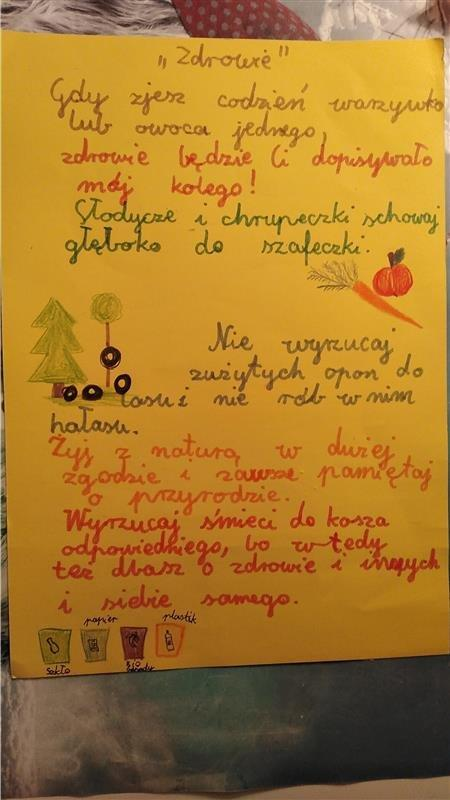 „Zdrowie"
Gdy zjesz codzień warzywko
lub owoca jednego,
zdrowie będzie Ci dopisywało
mój kolego!
Słodycze i chrupeczki schowaj
głęboko do szafeczki.
Nie wyrzucaj
zużytych opon do
lasu i nie rób w nim
hałasu.
Żyj z naturą w dużej
zgodzie i zawsze pamiętaj
o przyrodzie.
Wyrzucaj śmieci do kosza
odpowiedniego, bo w tedy
też dbasz o zdrowie i innych
i siebie samego.
papier plastik
szkło BIO odpady